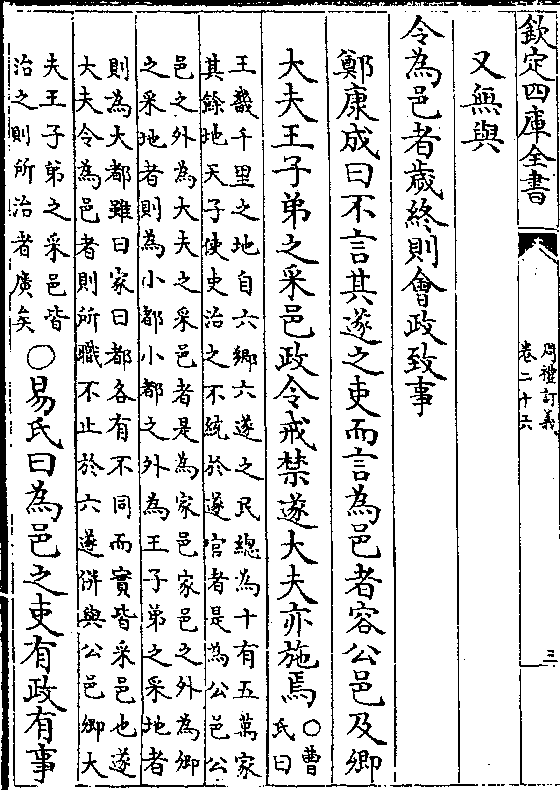 欽定四庫全書
周禮訂義
卷二十六
三
又無與
令為邑者歲終則會政致事
鄭康成曰不言其遂之吏而言為邑者容公邑及鄉
大夫王子弟之采邑政令戒禁遂大夫亦施焉〇曹
氏曰
王畿千里之地自六鄉六遂之民總為十有五萬家
其餘地天子使吏治之不統於遂官者是為公邑公
邑之外為大夫之采邑者是為家邑家邑之外為卿
之采地者則為小都小都之外為王子弟之采地者
則為大都雖曰家曰都各有不同而實皆采邑也遂
大夫令為邑者則所職不止於六遂併與公邑卿大
夫王子弟之采邑皆
治之則所治者廣矣
〇易氏曰為邑之吏有政有事